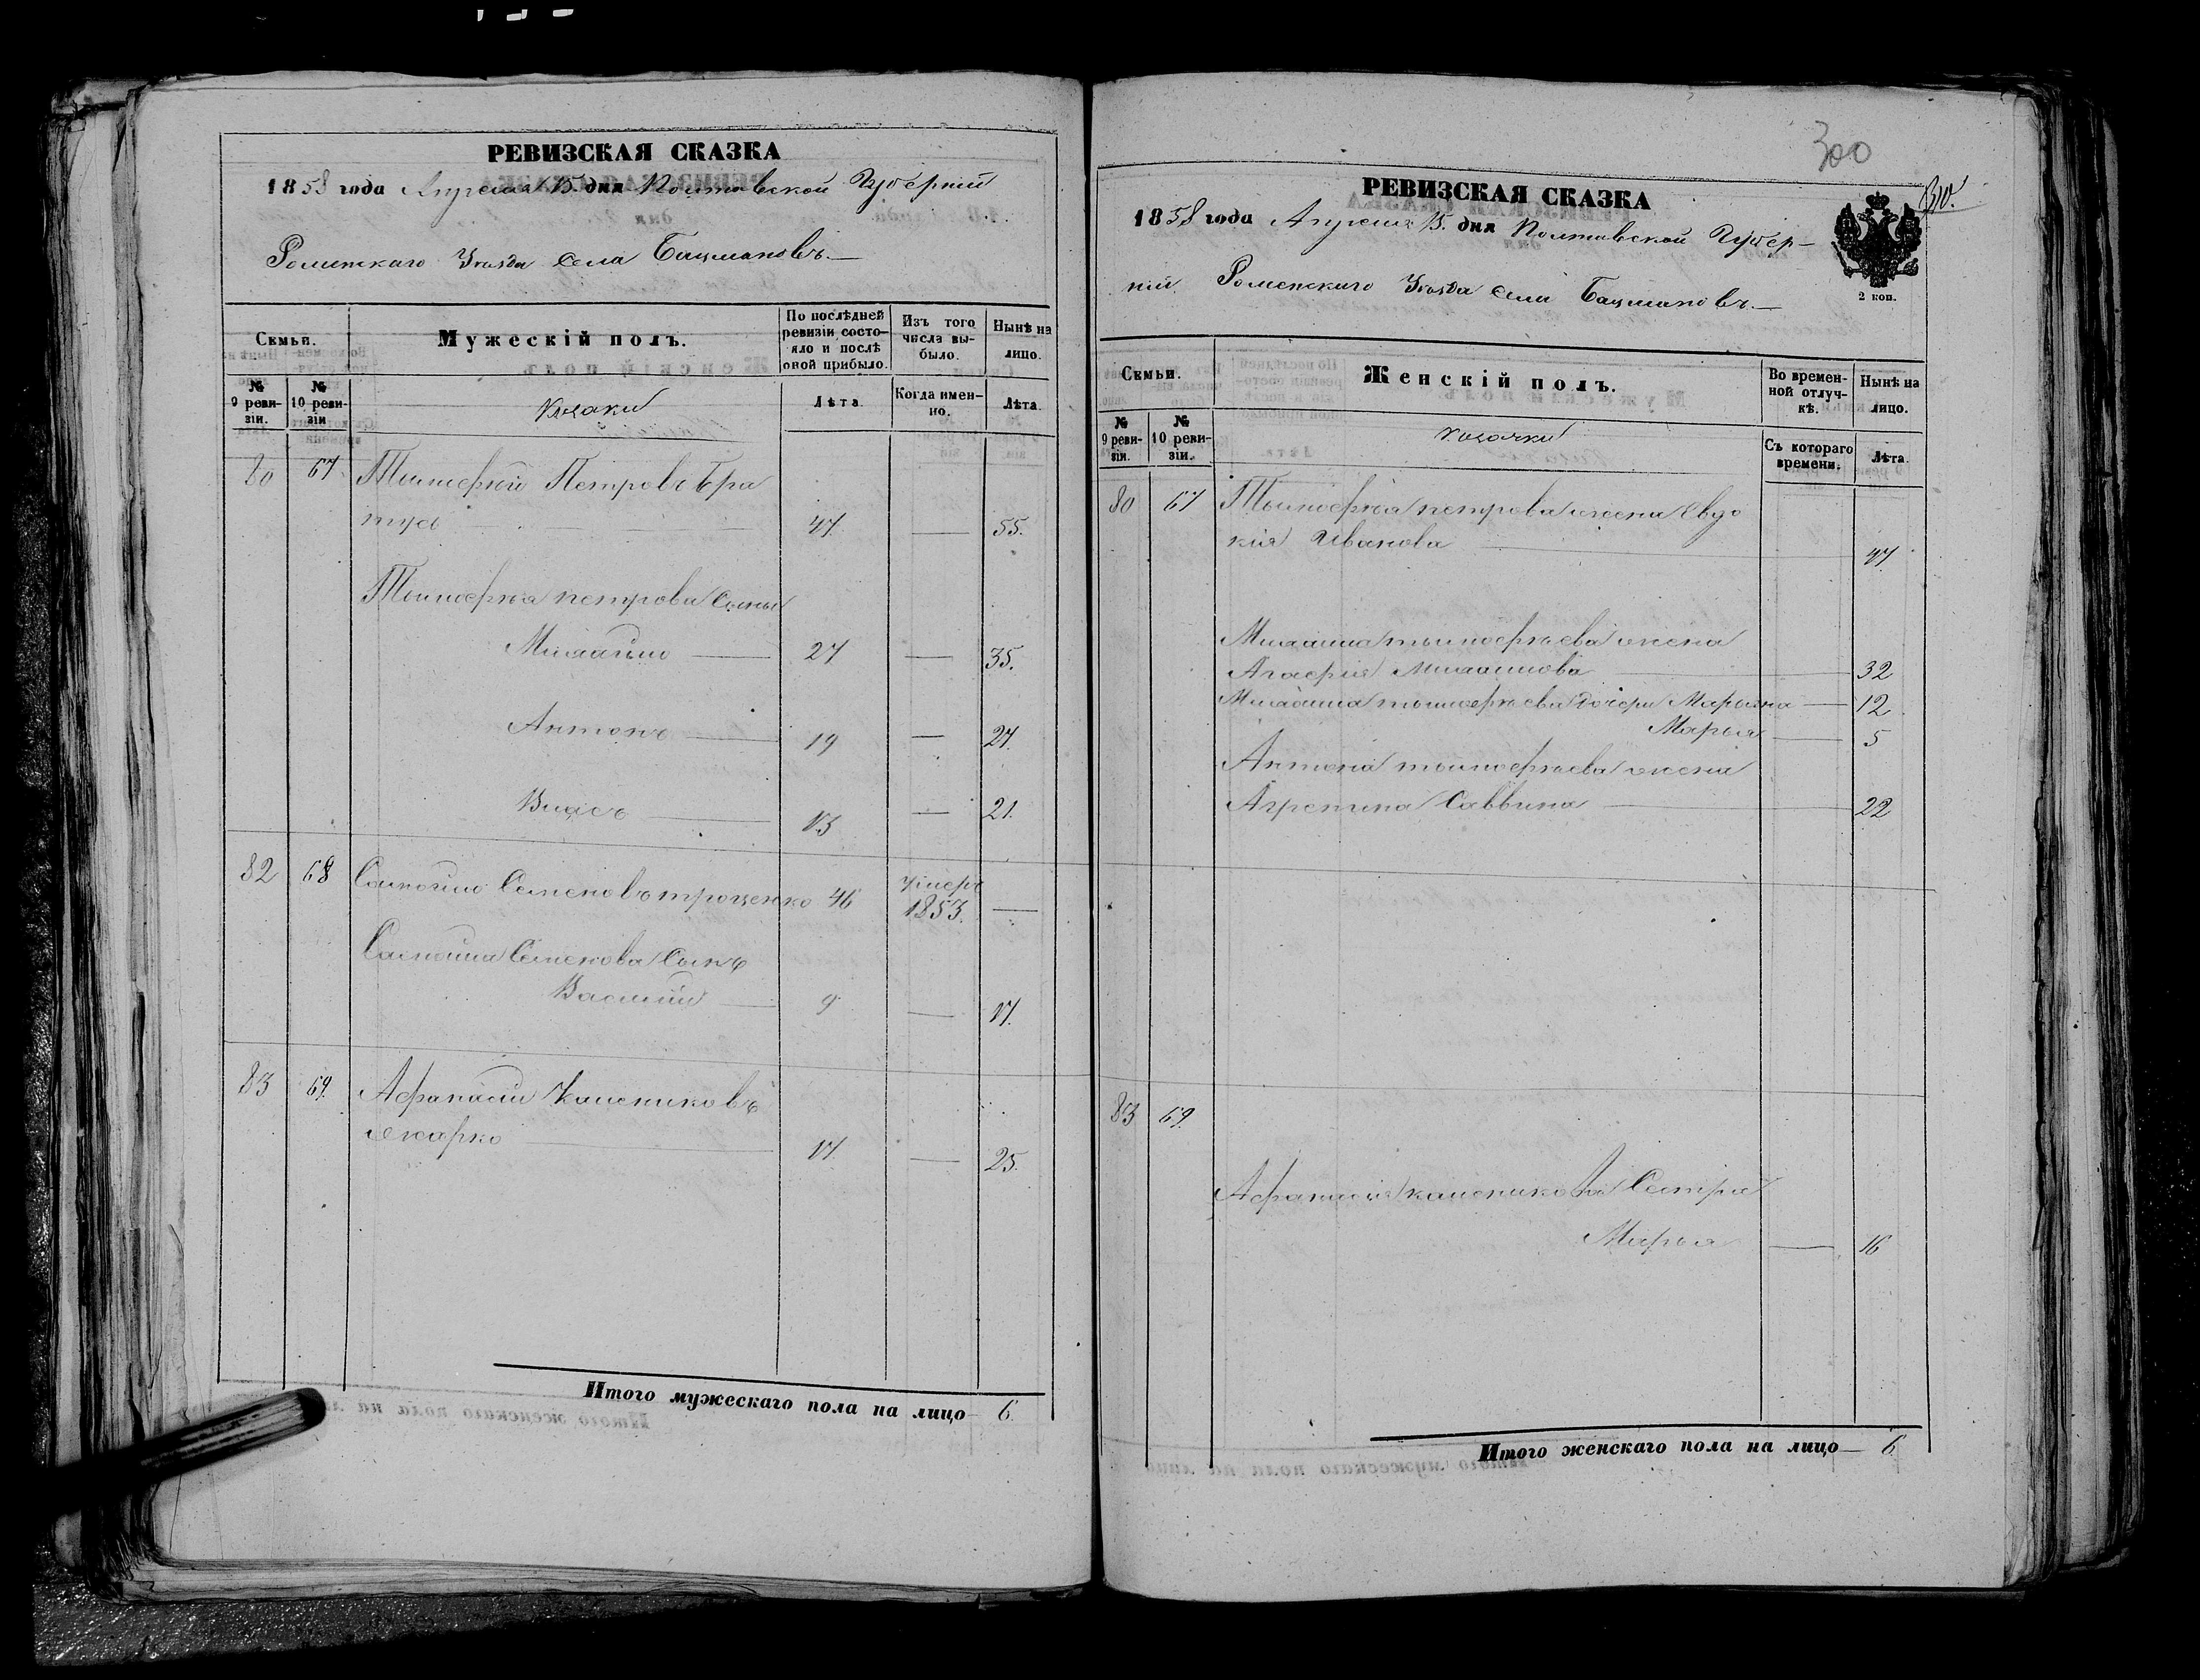 РЕВИЗСКАЯ СКАЗКА
1858 года Апреля 15. дня Полтавской Губерніи
Роменскаго Уезда села Бацмановъ.
Семьи.
Мужескій полъ.
По послѣдней ревизіи состояло и послѣ оной прибыло.
Изъ того числа выбыло.
Нынѣ на лицо.
№ 9 ревизіи.
№ 10 ревизіи
Козаки
Лѣта
Когда именно.
Лѣта.
80 67 Тимофей Петровъ Бра
тусь 47. — 55.
Тимофея петрова сыны
Михайло — 27 — 35.
Антонъ — 19 — 27.
Власъ — 13 — 21.
82 68 Самойло Семеновъ троценко 46 умеръ 1853. —
Самойла Семенова Сынъ
Василий — 9 — 17.
83 69. Афанасий
17. — 25.
Итого мужескаго пола на лицо— 6.
300
РЕВИЗСКАЯ СКАЗКА
1858 года Апреля 15. дня Полтавской Губер-
ніи Роменскаго Уезда села Бацмановъ.—
2 коп.
Семьи.
Женскій полъ.
Во временной отлучкѣ.
Нынѣ на лицо.
№ 9 ревизіи.
№ 10 ревизіи.
козачки
Съ котораго времени.
Лѣта.
80 67 Тимофея петрова жена Евдо
кия Иванова — 47.
Михайла тимофеева жена
Агафия Михайлова — 32
Михайла тимофеева дочери Марьяна — 12
Марья — 5
Антона тимофеева жена
Агрепина Саввина — 22
83 69.
Афанасия Сестра
Марья — 16
Итого женскаго пола на лицо— 6.